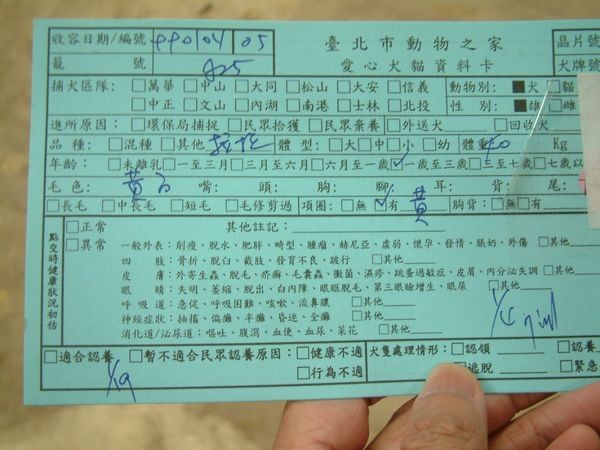 收容日期/編號 990104 05 臺北市動物之家 晶片號
籠 號 825 愛心犬貓資料卡 犬牌號
捕犬區隊: □萬華 □中山 □大同 □松山 □大安 □信義 動物別: ■犬 □貓
□中正 □文山 □內湖 □南港 □士林 □北投 性 別: ■雄 □雌
進所原因: □環保局捕捉 □民眾拾獲 □民眾棄養 □外送犬 □回收犬
品 種: □混種 □其他 體 型: □大 □中 □小 □幼 體重: Kg
年齡: □未離乳 □一至三月 □三至六月 □六月至一歲 ☑一歲至三歲 □三至七歲 □七歲以
毛 色: 黃白 嘴: 頭: 胸: 腳: 耳: 背: 尾:
□長毛 □中長毛 □短毛 □毛修剪過 項圈: □無 ☑有 黃 胸背: □無 □有
點交時健康狀況初估 □正常 其他註記:
□異常 一般外表: 削瘦、脫水、肥胖、畸型、腫瘤、赫尼亞、虛弱、懷孕、發情、脹奶、外傷 □其他
四 肢: 骨折、脫臼、截肢、發育不良、跛行 □其他
皮 膚: 外寄生蟲、脫毛、疥癬、毛囊蟲、黴菌、濕疹、跳蚤過敏症、皮屑、內分泌失調 □其他
眼 睛: 失明、萎縮、脫出、白內障、眼眶脫毛、第三眼瞼增生、眼屎 □其他
呼 吸 道: 急促、呼吸困難、咳嗽、流鼻膿 □其他
神經症狀: 抽搐、偏癱、半癱、昏迷、全癱 □其他
消化道/泌尿道: 嘔吐、腹瀉、血便、血尿、菜花 □其他
□適合認養 □暫不適合民眾認養原因: □健康不適 犬隻處理情形: □認領 □認養
□行為不適 □逃脫 □緊急
1/19